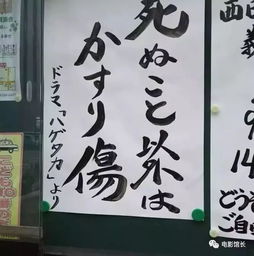 死ぬこと以外は
かすり傷
ドラマ「ハゲタカ」より
西
義
9
14
どうぞ
ご自由
电影馆长